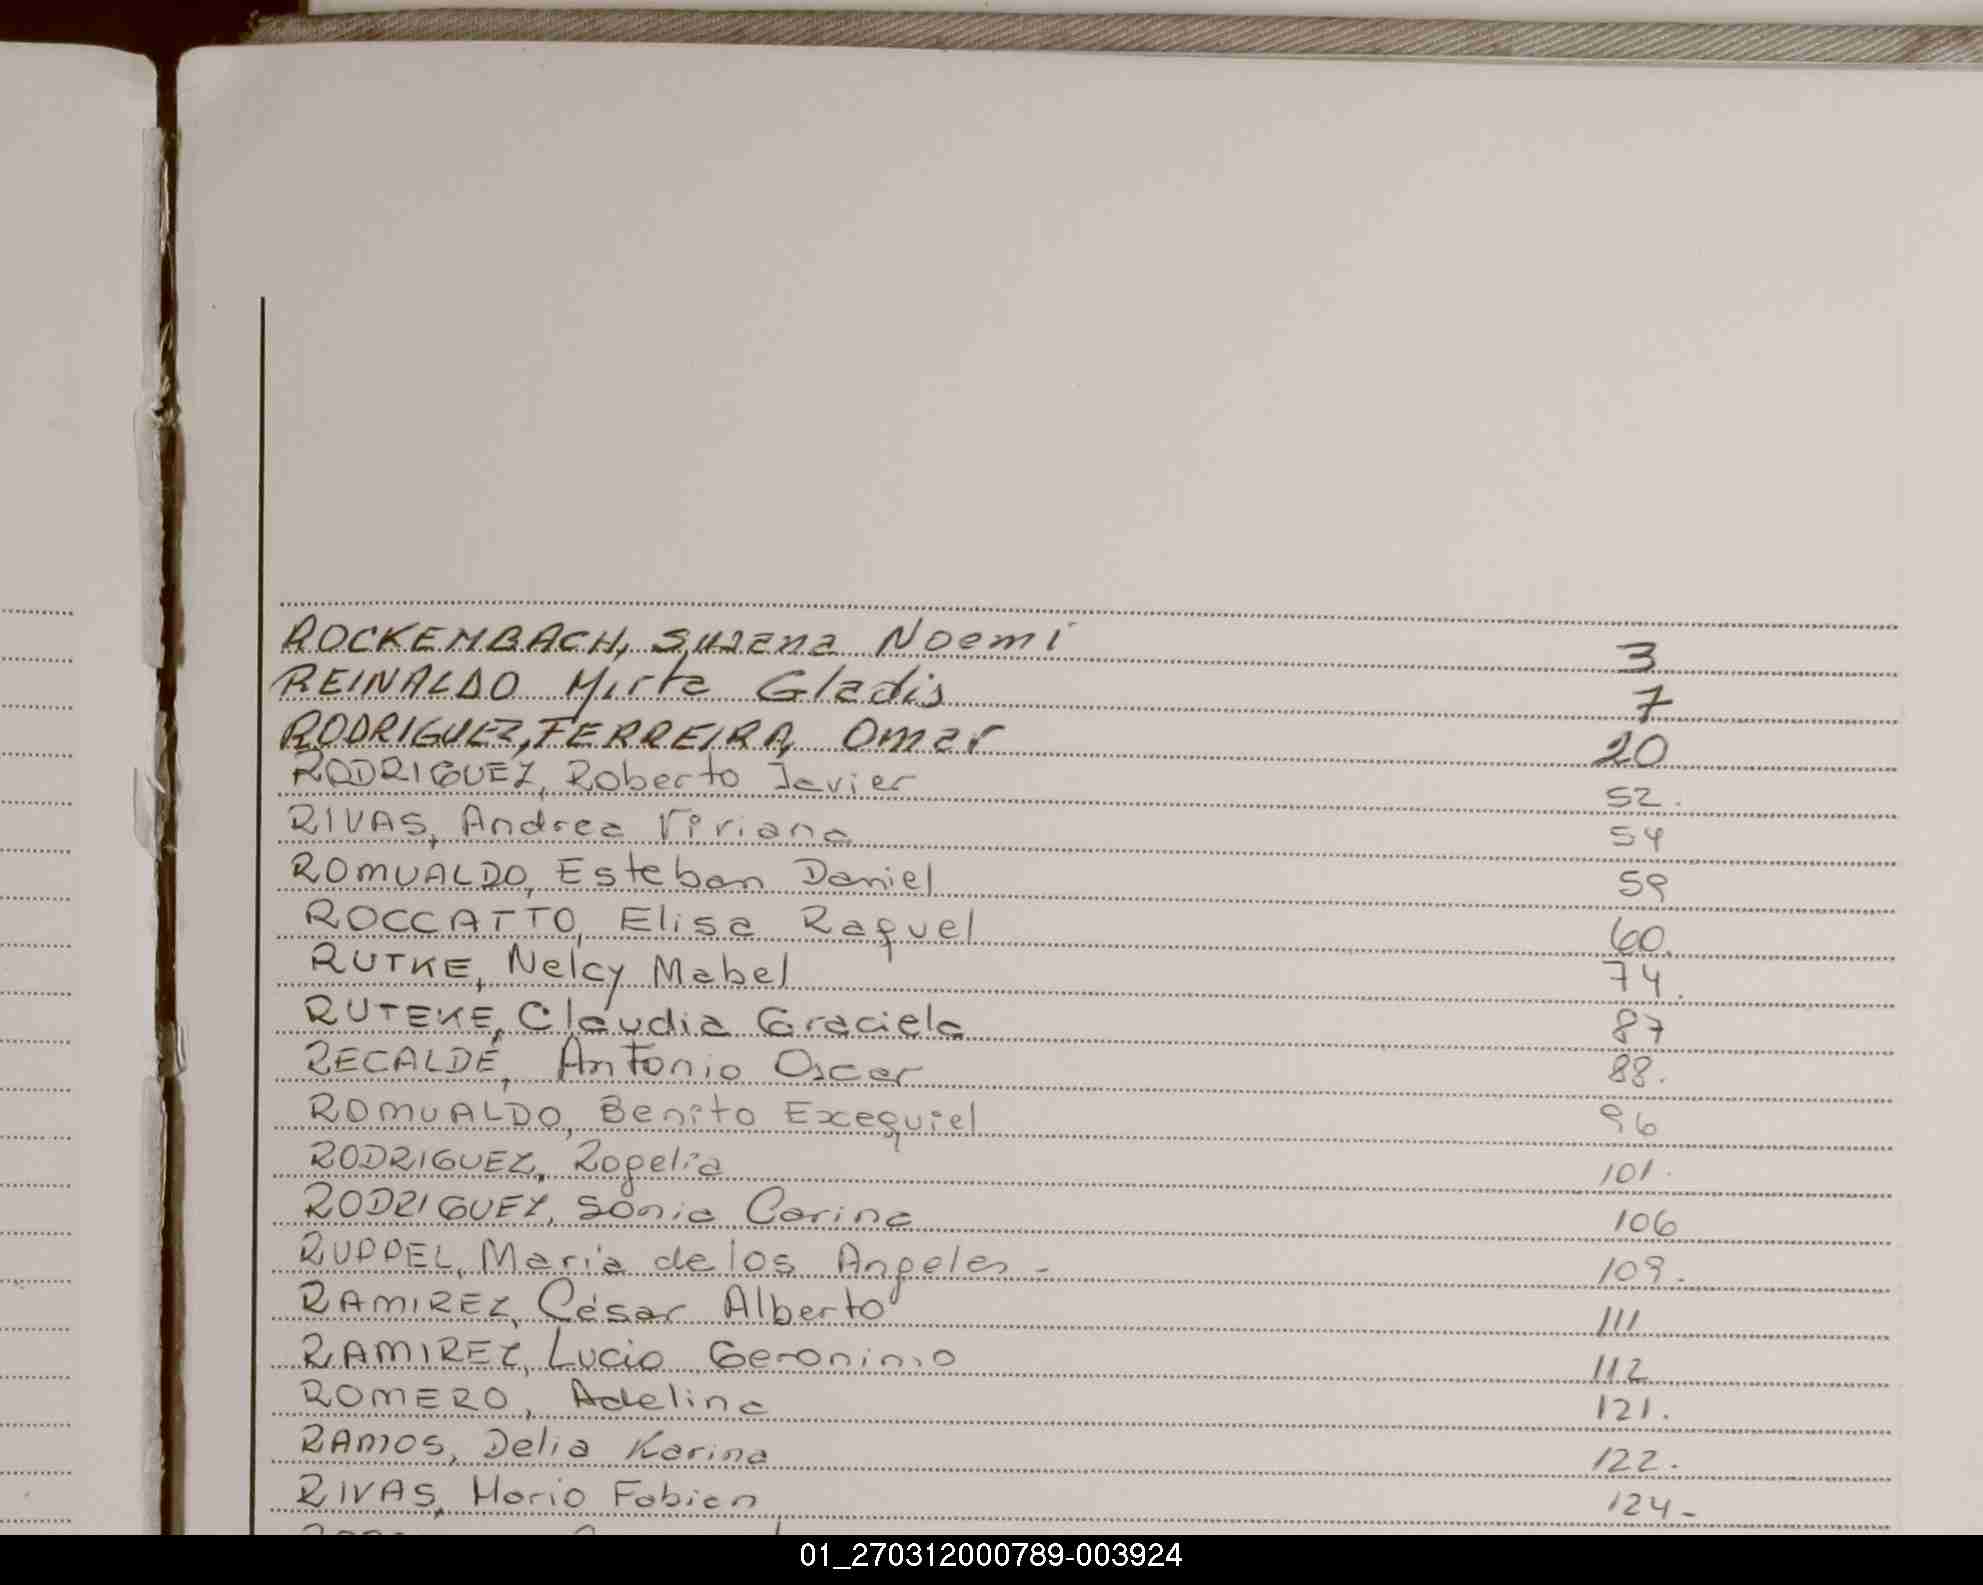 ROCKEMBACH, Susana Noemi 3
REINALDO Mirta Gladis 7
RODRIGUEZ, FERREIRA, Omar 20
RODRIGUEZ, Roberto Javier 52.
RIVAS, Andrea Viriana 54
ROMUALDO, Esteban Daniel 59
ROCCATTO, Elisa Raquel 60.
RUTKE, Nelcy Mabel 74.
RUTEKE, Claudia Graciela 87
RECALDE, Antonio Oscar 88.
ROMUALDO, Benito Exequiel 96
RODRIGUEZ, Rogelia 101.
RODRIGUEZ, Sonia Carina 106
RUPPEL, María de los Angeles - 109.
RAMIREZ, César Alberto 111
RAMIREZ, Lucio Geronimo 112
ROMERO, Adelina 121.
RAMOS, Delia Karina 122.
RIVAS, Mario Fabian 124-
01_270312000789-003924